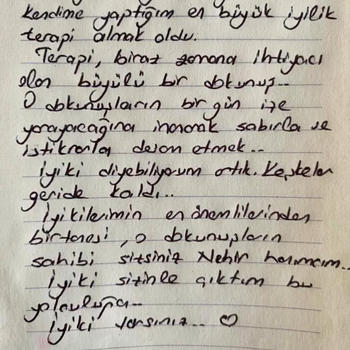 kendime yaptığım en büyük iyilik
terapi almak oldu.
Terapi, biraz zamana ihtiyacı
olan büyülü bir dokunuş..
O dokunuşların bir gün işe
yarayacağına inanarak sabırla ve
istikrarla devam etmek..
iyiki diyebiliyorum artık. Keşkeler
geride kaldı..
iyikilerimin en önemlilerinden
bir tanesi, o dokunuşların
sahibi sizsiniz Nehir hanımcım..
iyiki sizinle çıktım bu
yolculuğa..
iyiki varsınız.. ♡